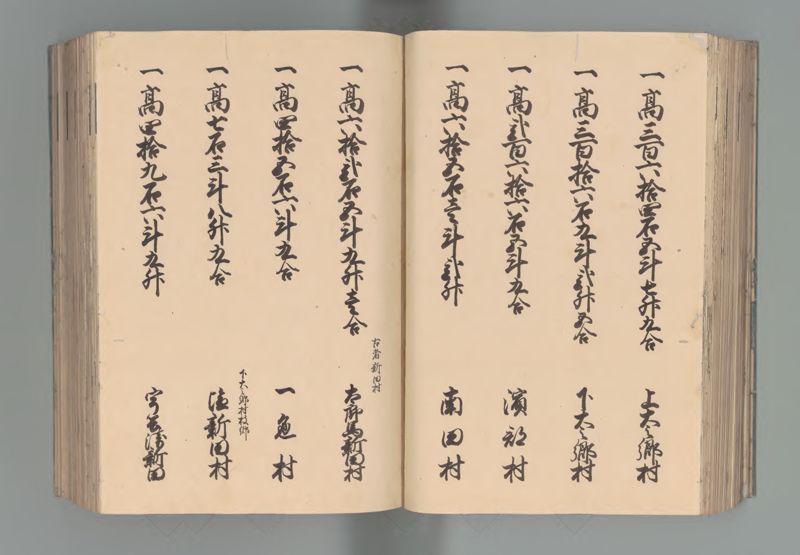 一高三百六拾四石五斗七升九合 上大之郷村
一高三百拾六石九斗弐升五合 下大之郷村
一高弐百六拾六石五斗九合 濱部村
一高六拾五石壱斗弐升 南田村
古者新田村
一高六拾弐石五斗九升壱合 右所馬新田村
一高四拾五石六斗九合 一色村
下大之郷村枝郷
一高七石三斗八升九合 新田村
一高四拾九石六斗九升 新田